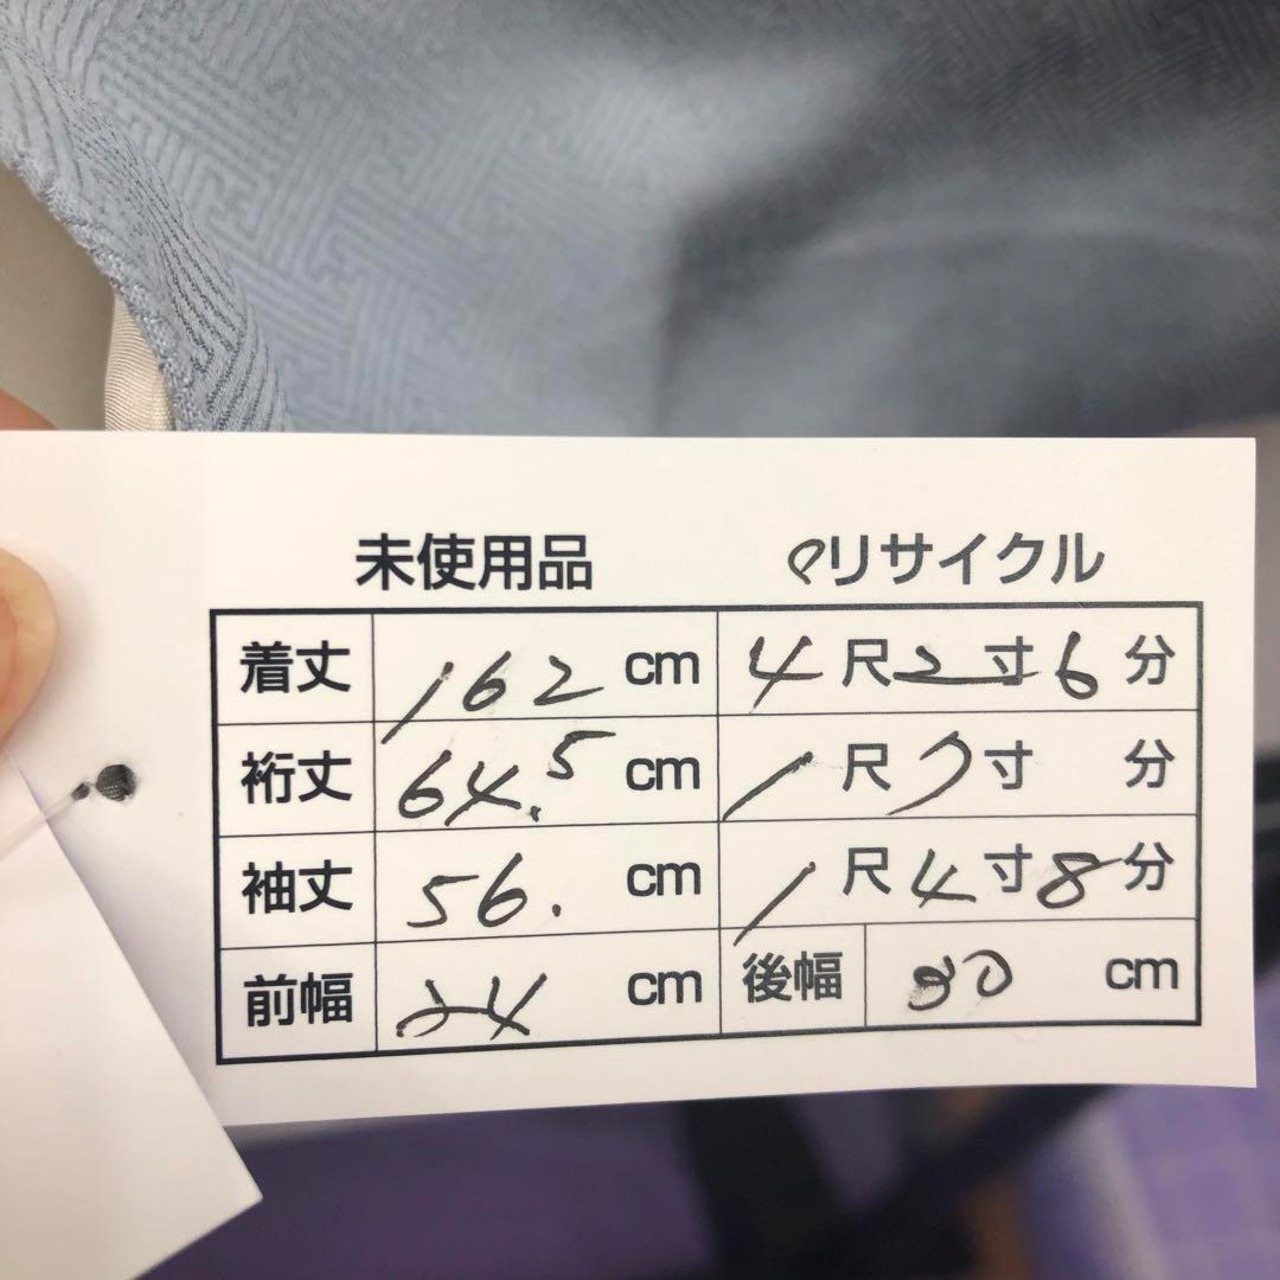 未使用品 リサイクル
着丈 162 cm 4尺2寸6分
裄丈 64.5 cm 1尺7寸 分
袖丈 56. cm 1尺4寸8分
前幅 24 cm 後幅 30 cm